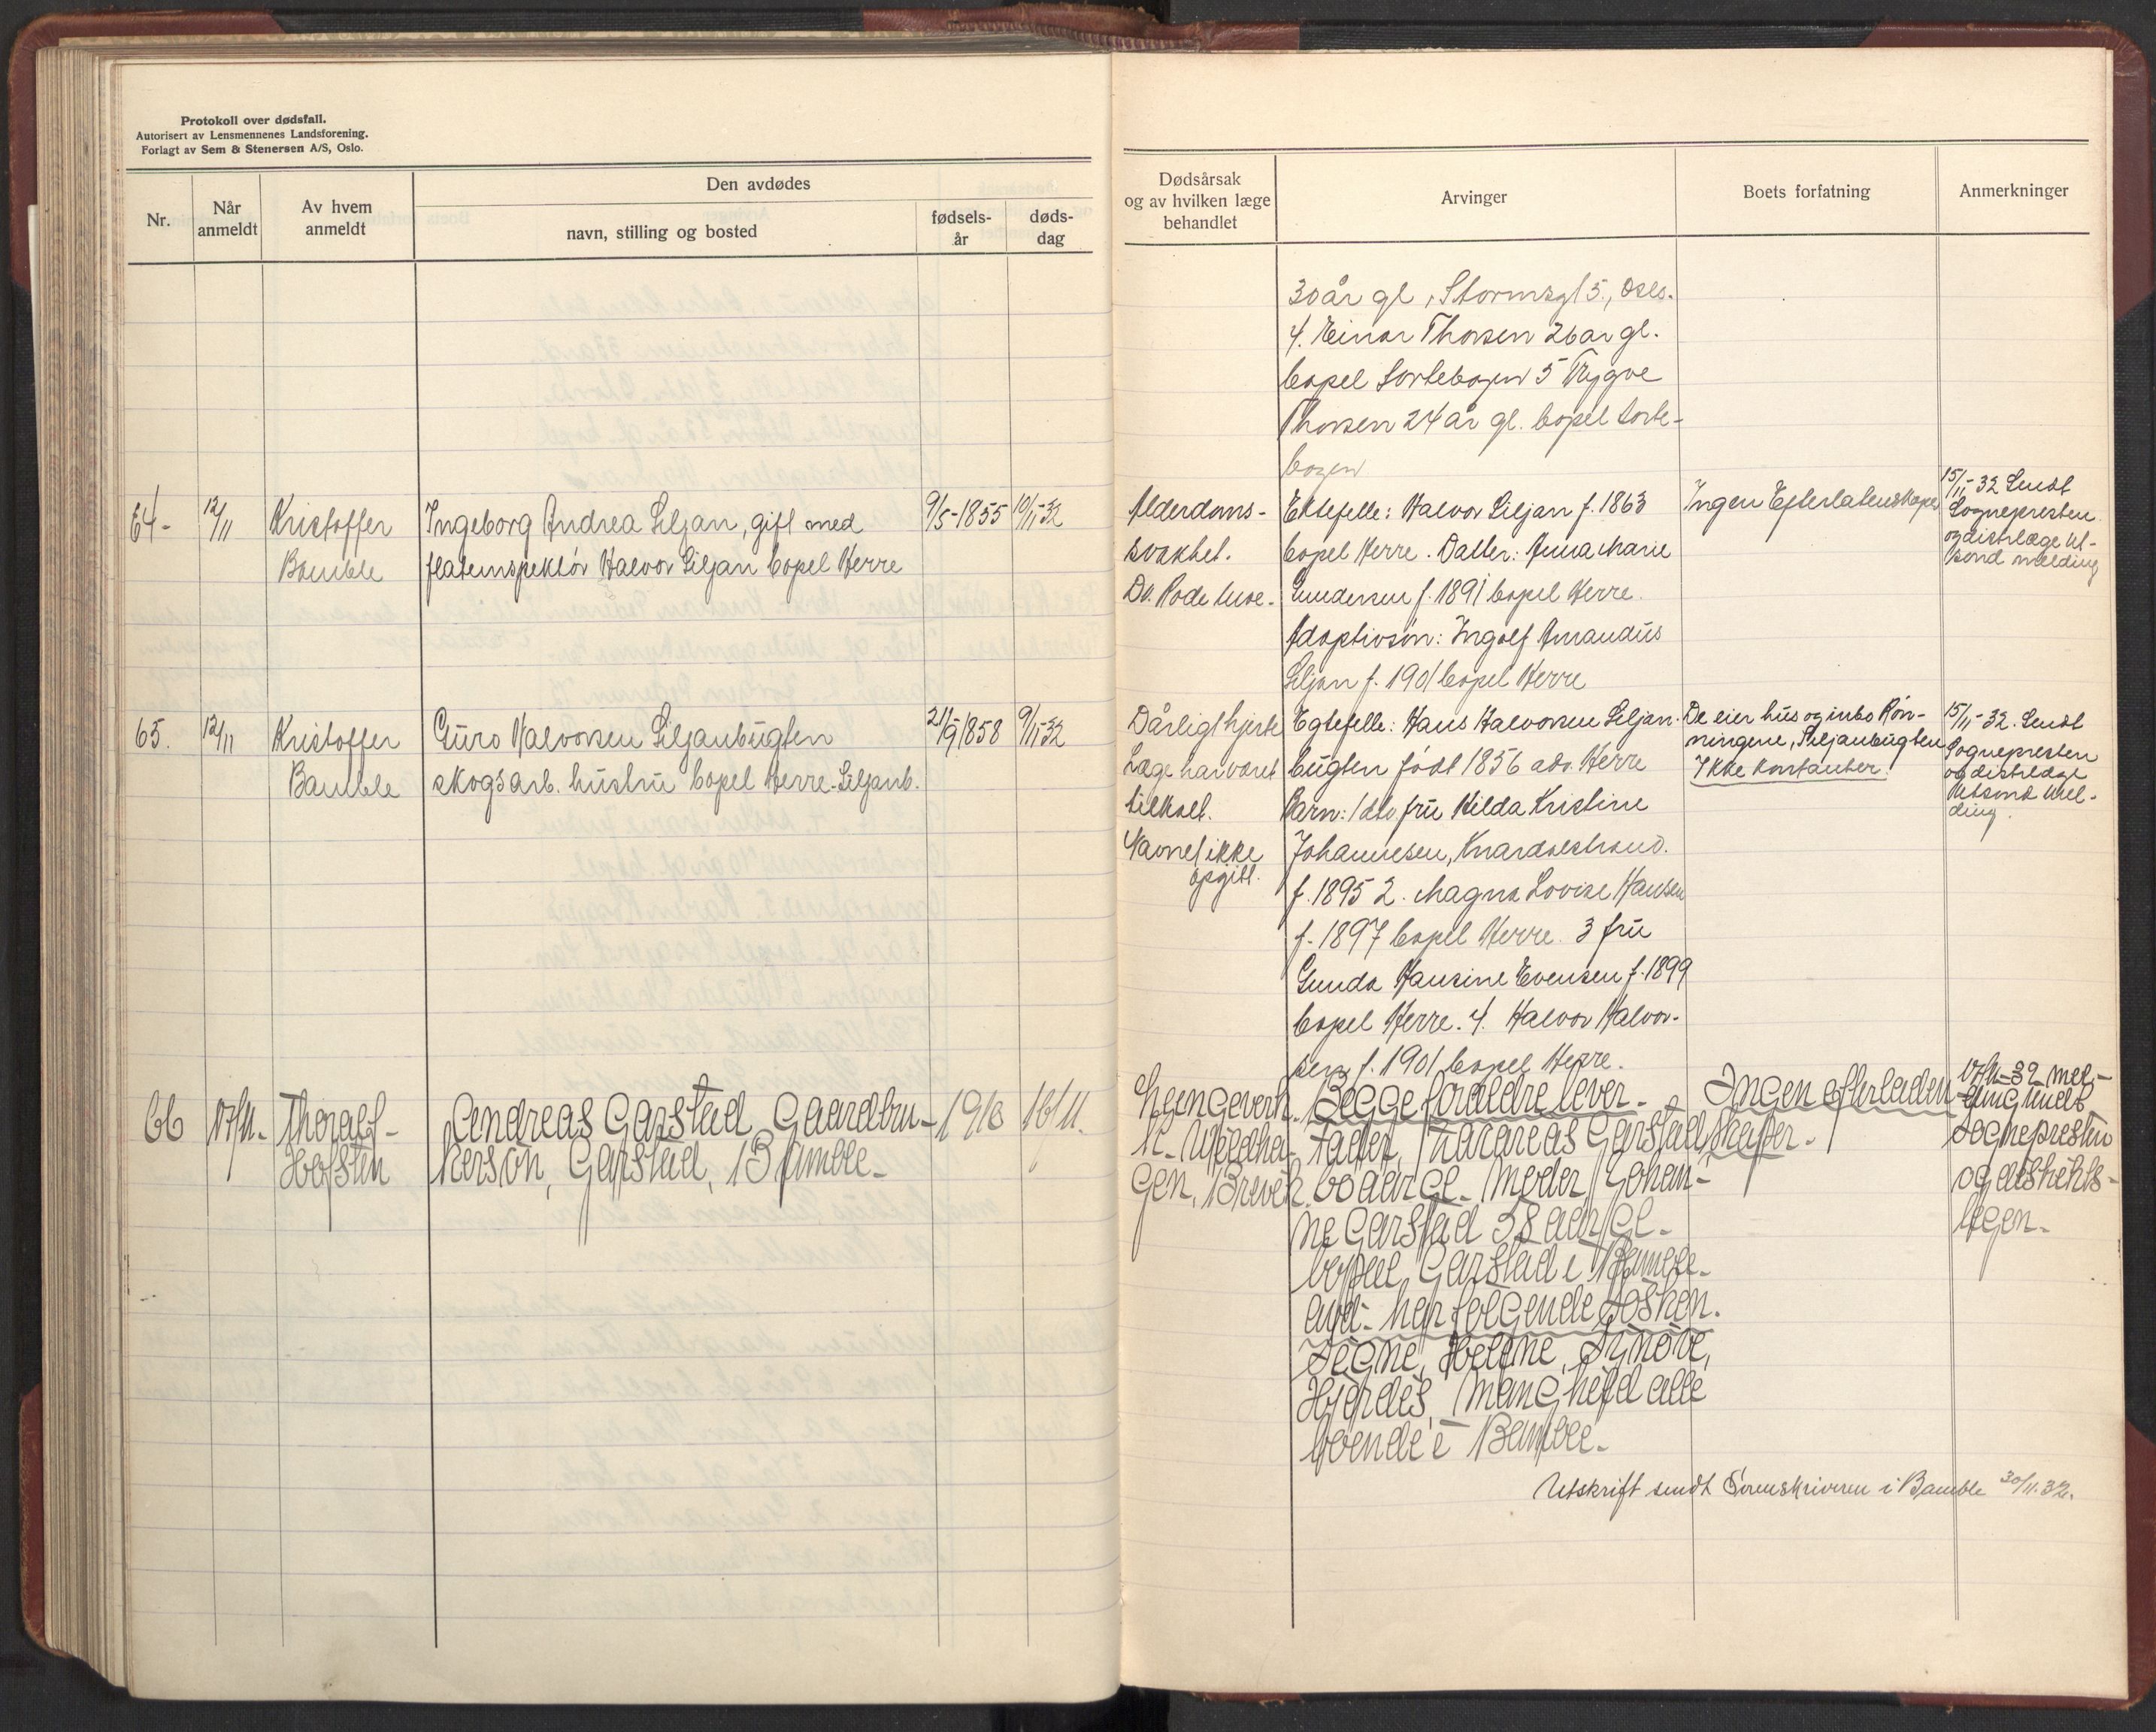 Protokoll over dødsfall.
Autorisert av Lensmennenes Landsforening.
Forlagt av Sem & Stenersen A/S, Oslo.
Nr.
Når anmeldt
Av hvem anmeldt
Den avdødes
navn, stilling og bosted
fødsels-år
døds-dag
Dødsårsak og av hvilken læge behandlet
Arvinger
Boets forfatning
Anmerkninger
30 år gl, Stormsgt 5., Oslo.
4. Einar Thorsen 26 år gl.
bopel Sortebogen 5 Trygve
Thorsen 24 år gl. bopel Sorte-
bogen
64-
12/11
Kristoffer
Bamble
Ingeborg Andrea Siljan, gift med
fløteinspektör Halvor Siljan bopel Herre
9/5-1855
10/11-32
Alderdoms-
svakhet.
Dr. Rode
Ektefelle: Halvor Siljan f. 1863
bopel Herre. Datter: Anna Marie
Gundersen f. 1891 bopel Herre.
Adoptivsøn: Ingolf Amandus
Siljan f. 1901 bopel Herre
Ingen Efterlatenskaper
15/11-32 Sendt
Sognepresten
og distrlæge ut-
sond melding
65.
12/11
Kristoffer
Bamble
Guro Halvorsen Siljanbugten
skogsarb. hustru bopel Herre-Siljanb.
21/9 1858
9/11-32
Dårligt hjerte
Læge har været
tilkalt.
Navnet ikke
opgitt.
Egtefelle: Hans Halvorsen Siljan-
bugten født 1856 adr. Herre
Barn: 1 dtr. fru Hilda Kristine
Johannesen, Knardalstrand.
f. 1895 2. Magna Lovise Hansen
f. 1897 bopel Herre. 3 fru
Gunda Hansine Evensen f. 1899
bopel Herre. 4. Halvor Halvor-
sen f. 1901 bopel Herre.
De eier hus og inbo Røn-
ningene, Siljanbugten
Ikke kontanter.
15/11-32. Sendt
Sognepresten
og distrlæge
utsond mel-
ding.
66
17/11.
Thoralf
Hofsten
Andreas Garstad Gaardbru-
kersön, Garstad, Bamble-
1913
16/11.
Begge foræeldre lever-
Fader, Zakarias Garstad
60 aar gl. Moder Johan-
ne Garstad 58 aar gl-
bopæl, Garstad i Bamble-
avd- har følgende søsken.
Signe, Helene, Synöve,
Hjørdis, Manghild alle
boende i Bamble.
gen, Brevik
Ingen efterladen-
skaper-
17/11-32 mel-
ding sendt
Sognepresten
og distrikts-
legen-
Utskrift sendt Sorenskriveren i Bamble 30/11.32.